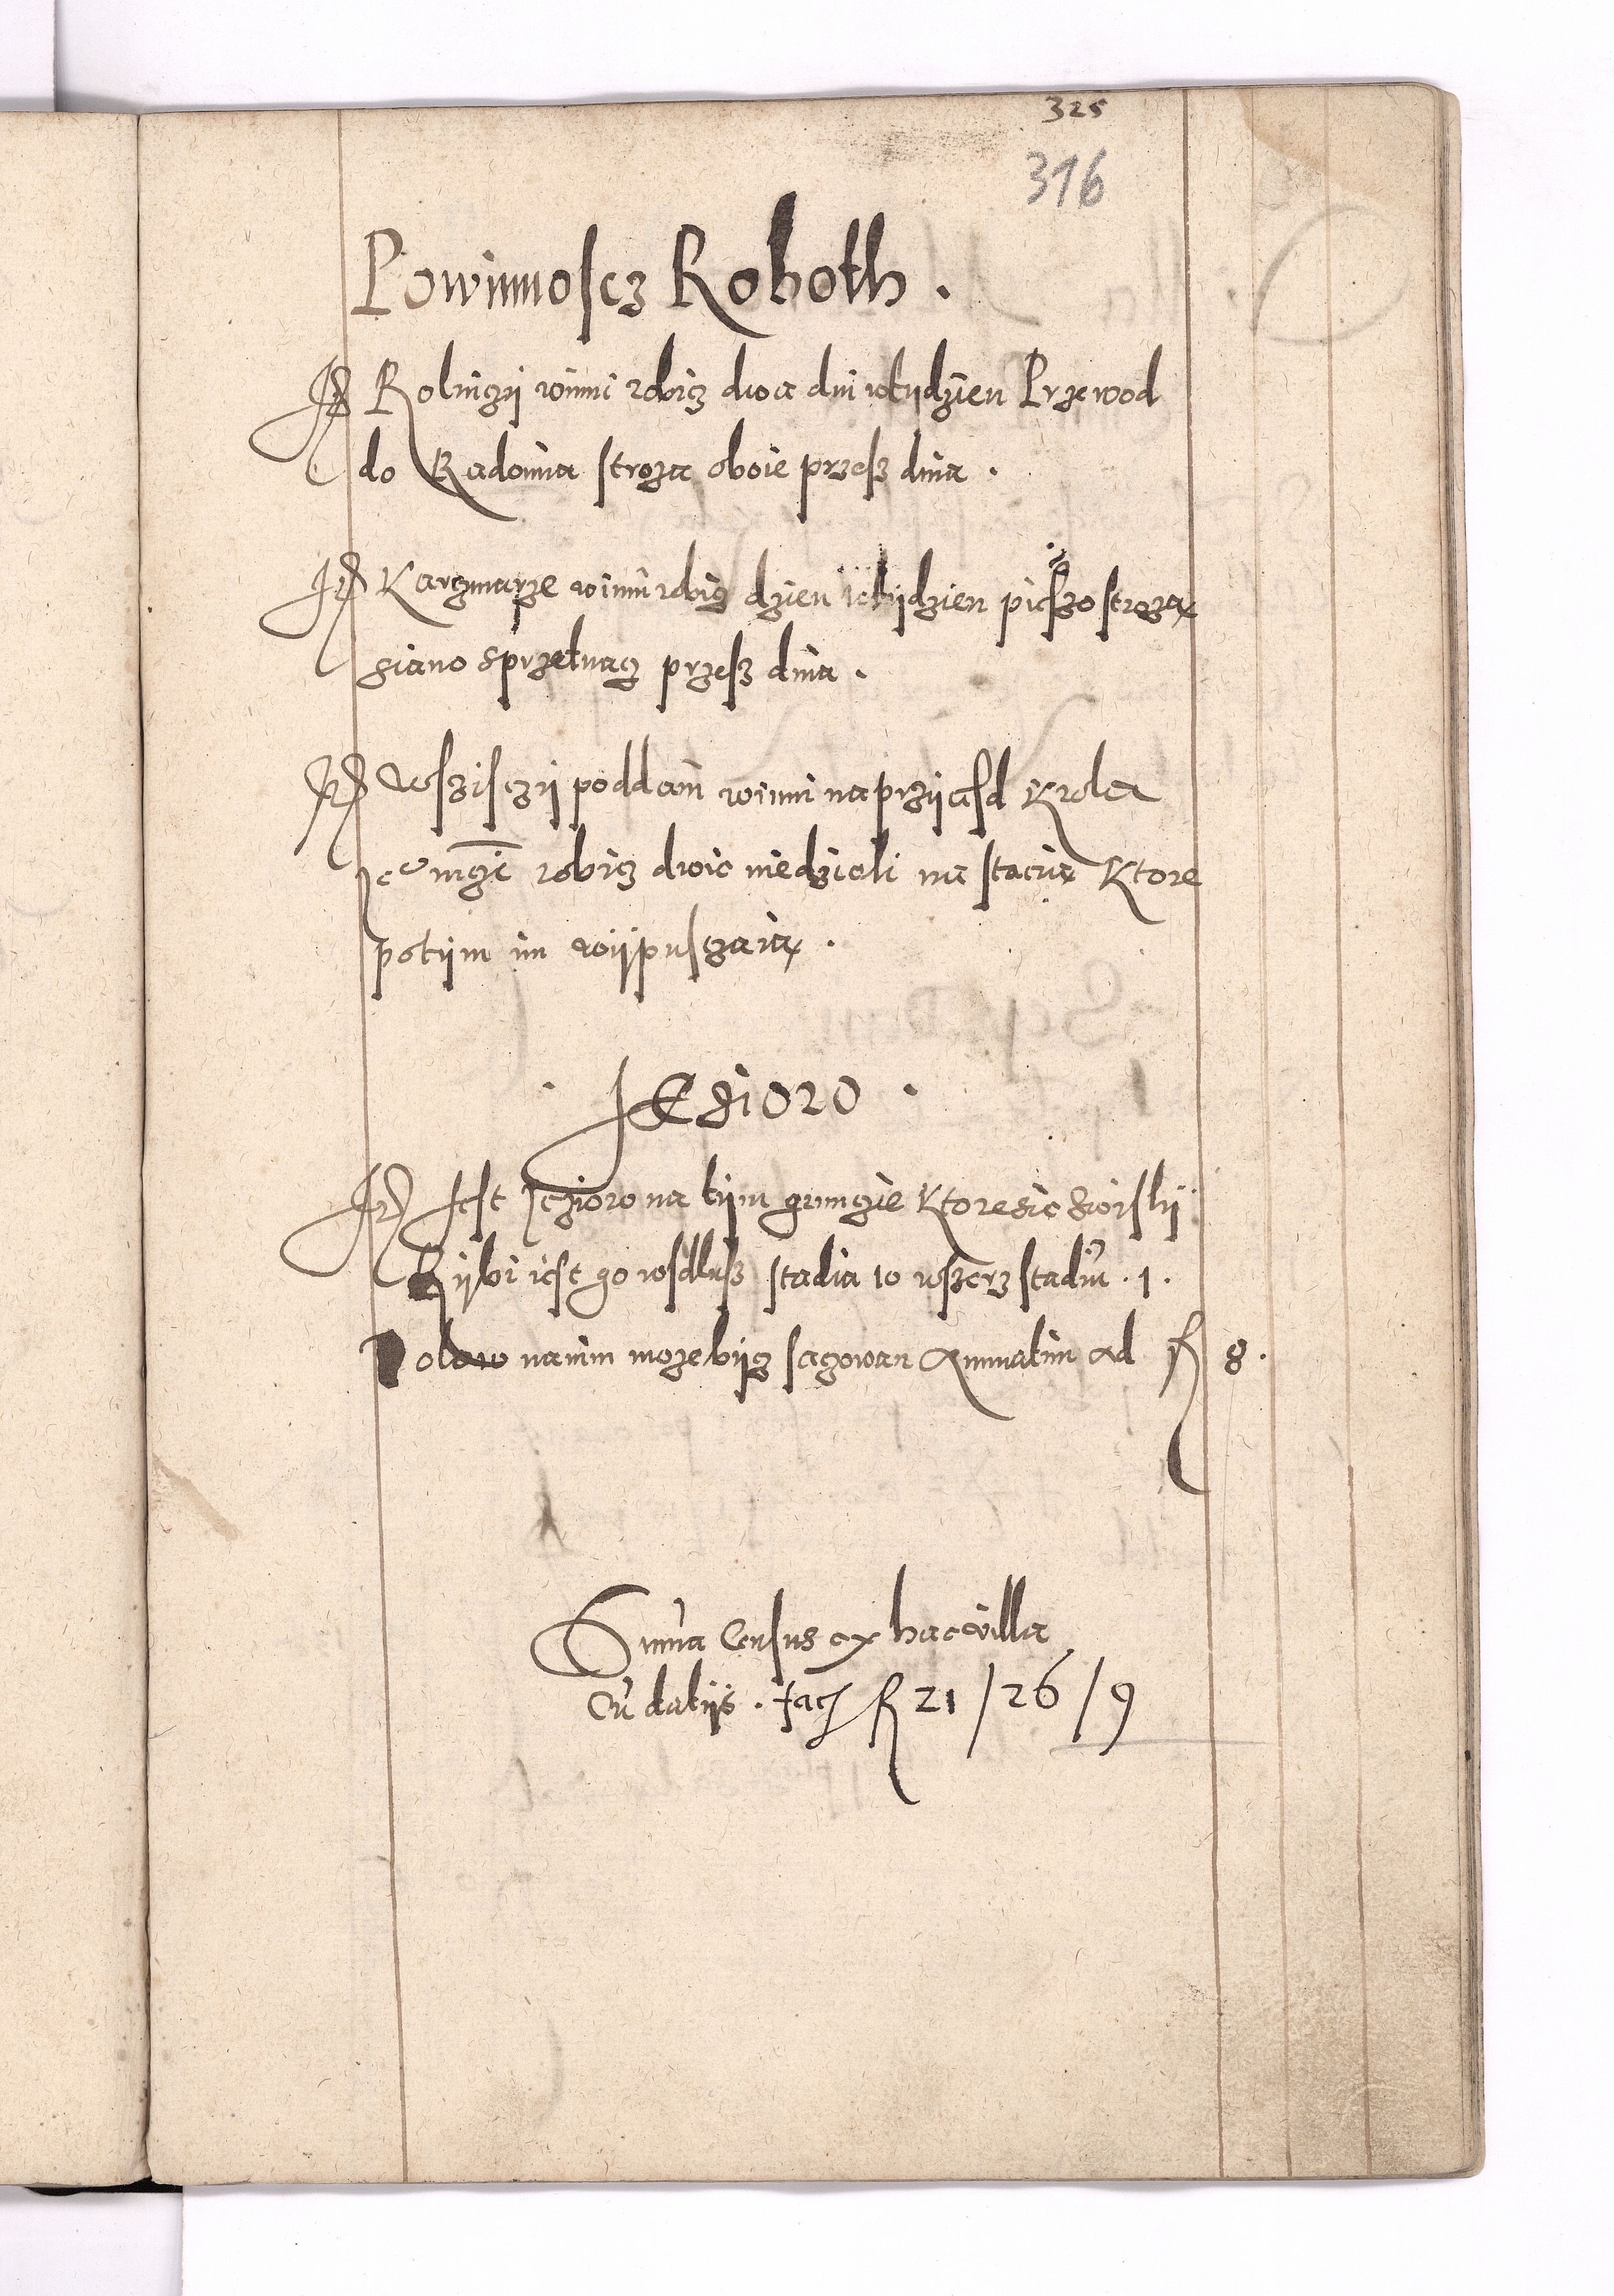 325
316
Powinnoscz Roboth.
It Rolniczy winni robicz dwa dni wtydzien Przewod
do Radomia stroza oboie przesz dnia.
It Karczmarze winni robicz dzien wtydzien pieszo strozą
siano sprzetnacz przesz dnia.
It Wszisczy poddani winni na przyiasd Krola
Je° mczi robicz dwie niedzieli na stacią Ktore
potym im wypusczaią.
Jezioro
It Jest Jezioro na tym gruncie Ktore sie
Rybi iest go wsdlusz stadia 10 wszerz stadiu. 1.
Polow na nim moze bycz Annuatim ad fl 8.
Suma Census ex hac villa
Cu datys. facj fl 21/26/9